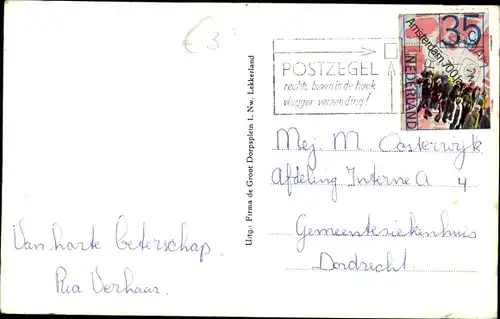 € 3
POSTZEGEL
rechts boven in de hoek
vlugger verzending!
35
Amsterdam 700
NEDERLAND
Mej. M. Oosterwijk
Afdeling Interne A 4
Gemeenteziekenhuis
Dordrecht.
Van harte beterschap
Ria Verhaar.
Uitg.: Firma de Groot Dorpsplein 1. Nw. Lekkerland